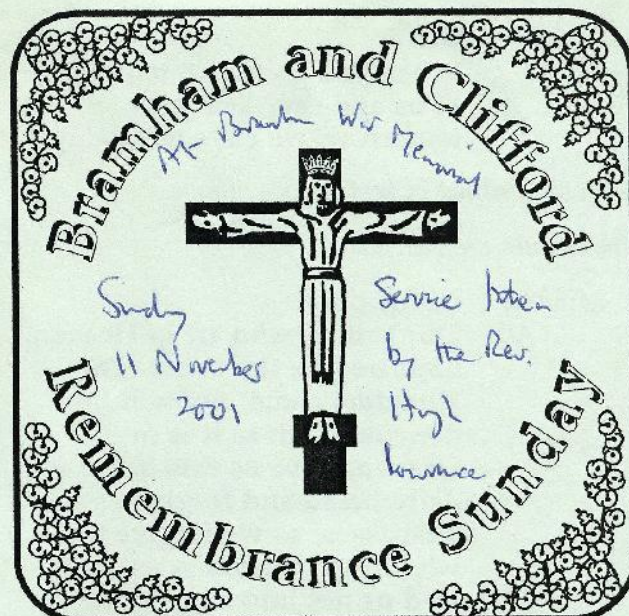 Bramham and Clifford
At Bramham War Memorial
Sunday
11 November
2001
Service taken
by the Rev.
Hugh
Lawrence
Remembrance Sunday